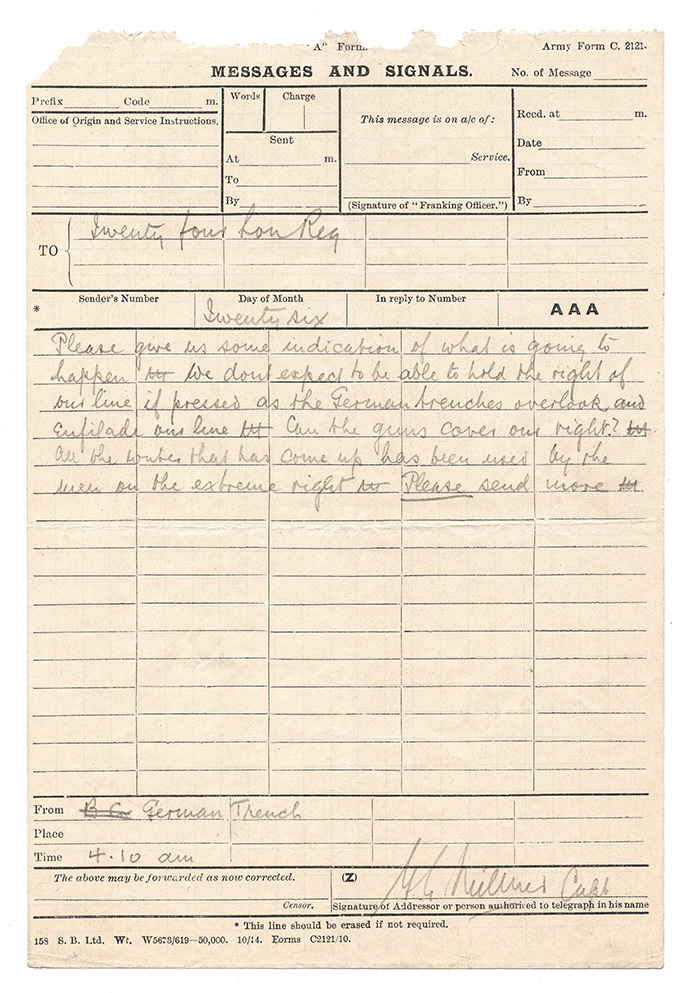 "A" Form.
Army Form C. 2121.
MESSAGES AND SIGNALS.
No. of Message
Prefix Code m.
Office of Origin and Service Instructions.
Words Charge
Sent
At m.
To
By
This message is on a/c of:
Service.
(Signature of "Franking Officer.")
Recd. at m.
Date
From
By
TO Twenty four Lon Reg
* Sender's Number Day of Month In reply to Number AAA
Twenty six
Please give us some indication of what is going to
happen We dont expect to be able to hold the right of
our line if pressed as the German trenches overlook and
Enfilade our line Can the guns cover our right?
All the that has come up has been used by the
men on the extreme right Please send more
From B Co German Trench
Place
Time 4.10 am
The above may be forwarded as now corrected.
(Z)
Capt
Censor.
Signature of Addressor or person authorised to telegraph in his name
* This line should be erased if not required.
158 S. B. Ltd. Wt. W5673/619—50,000. 10/14. Forms C2121/10.